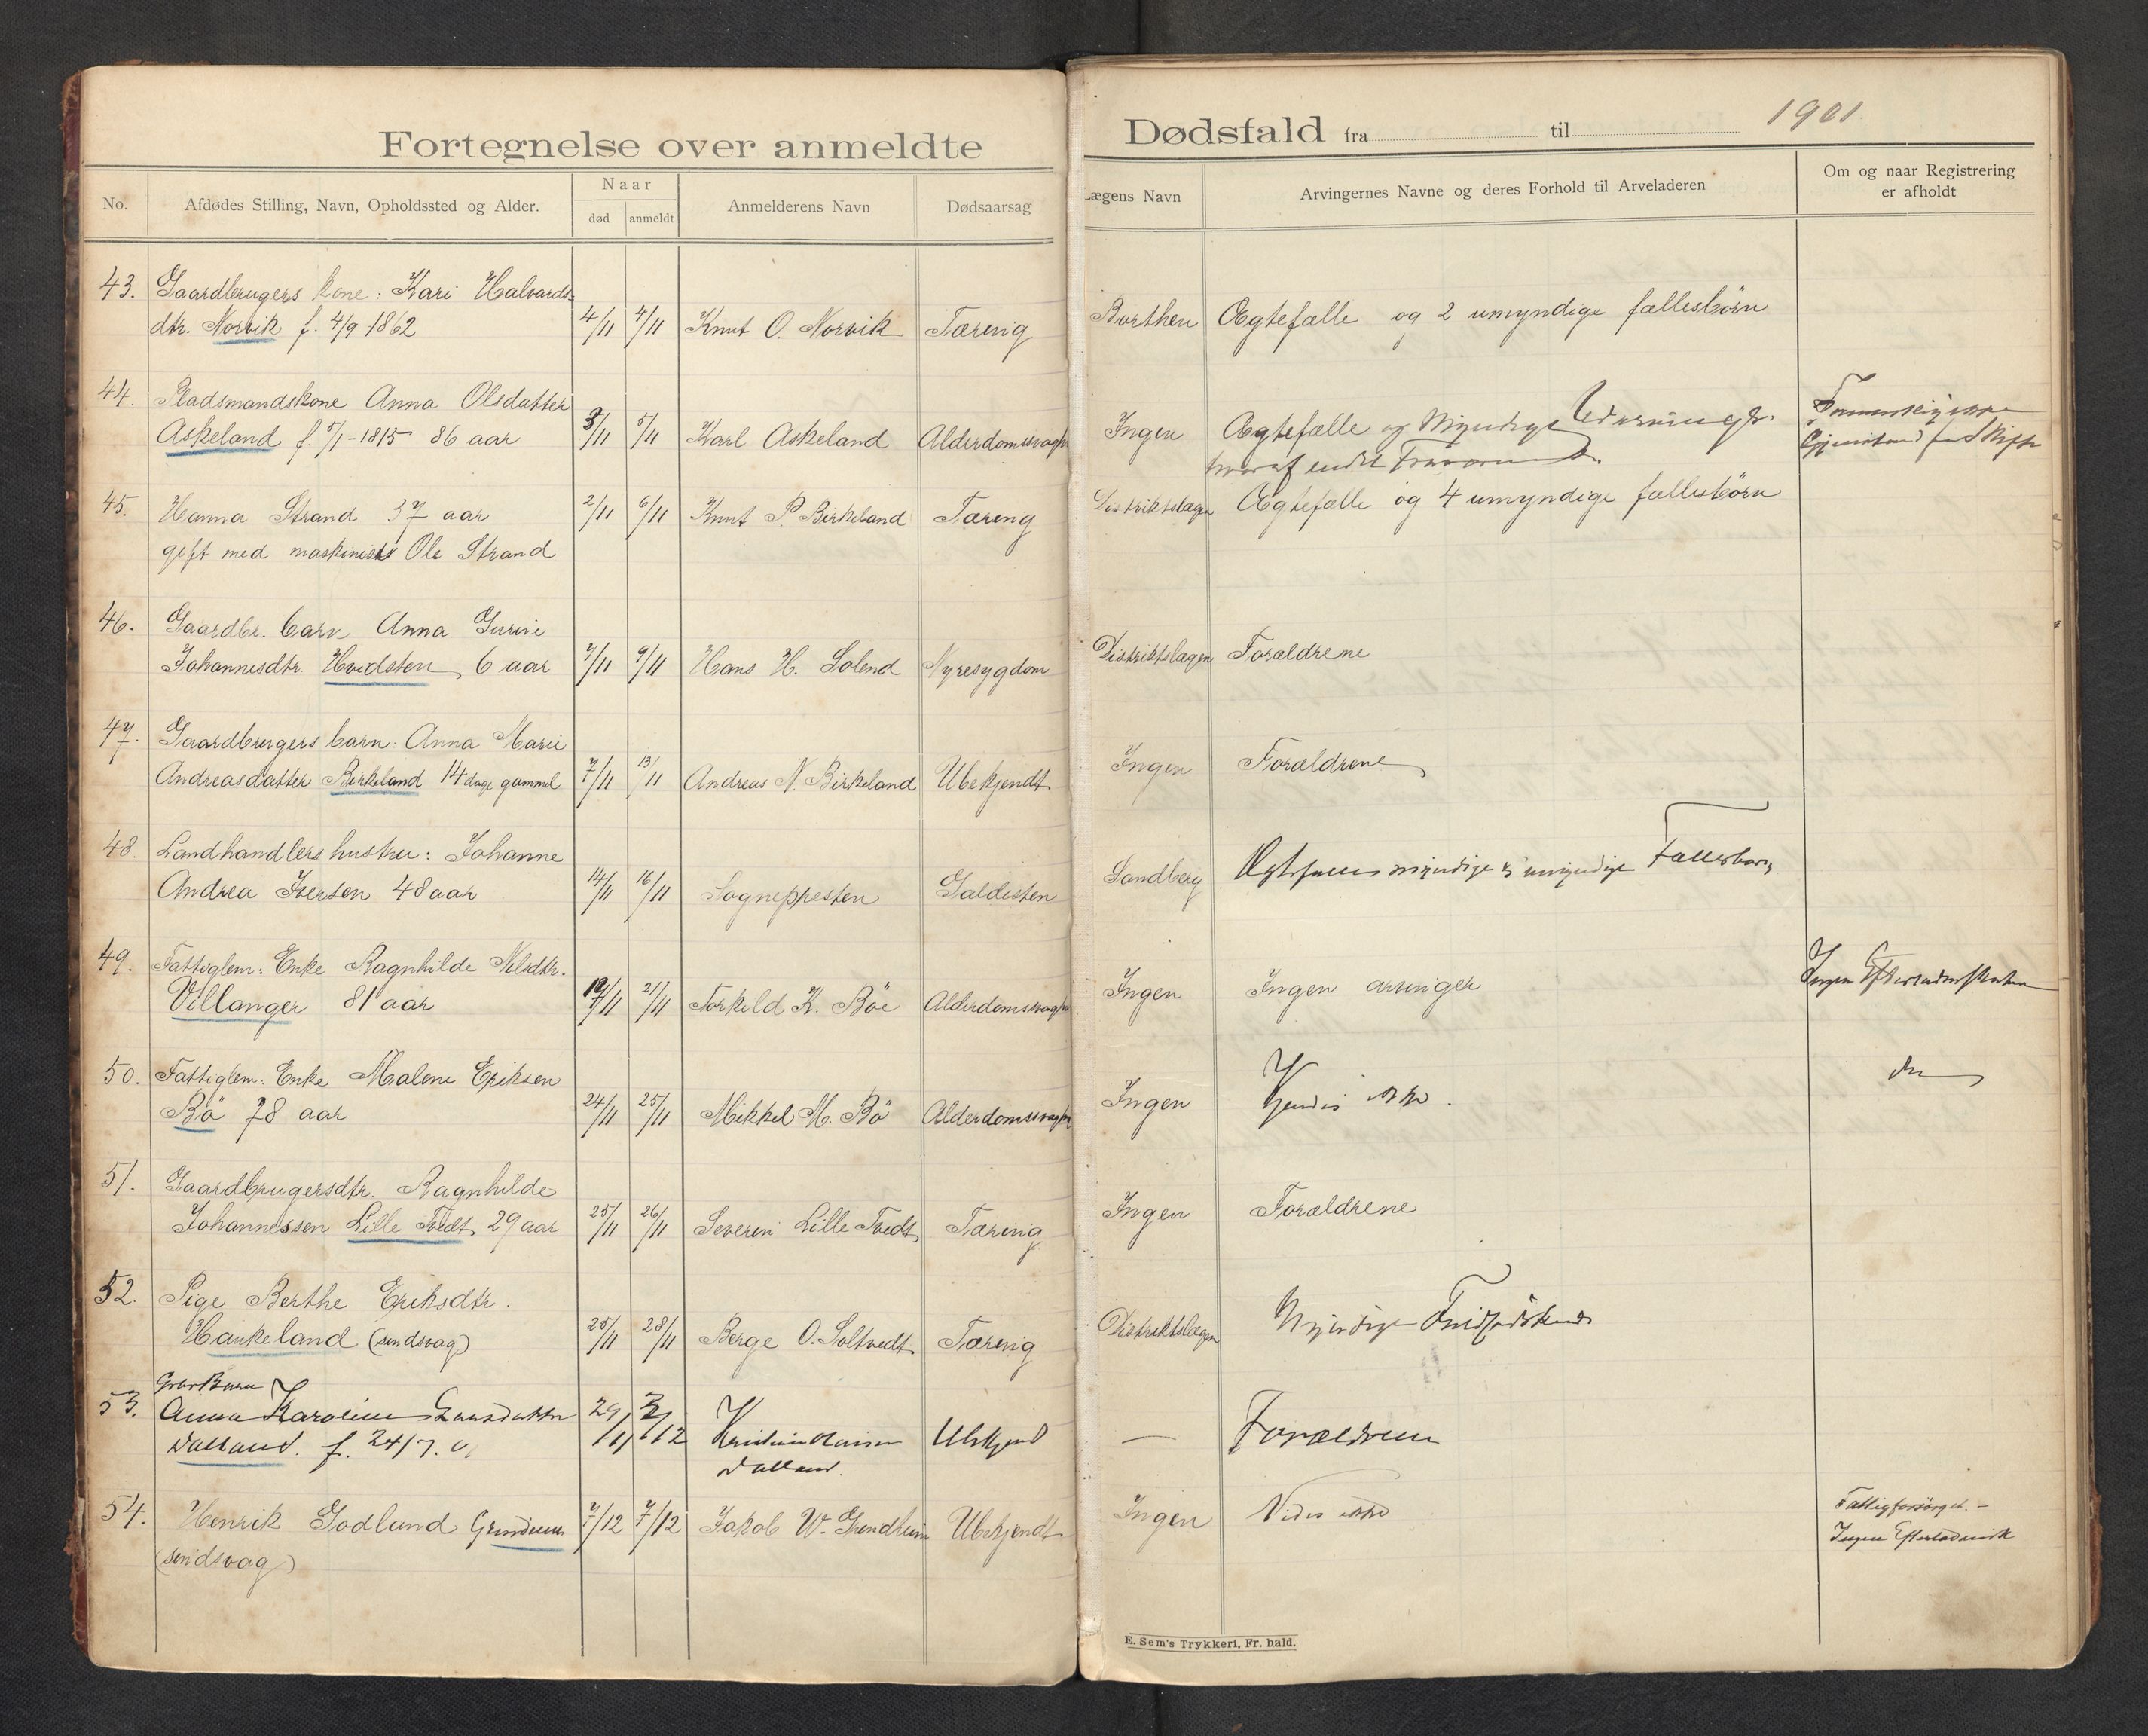 Fortegnelse over anmeldte
Dødsfald fra til 1901.
No.
Afdødes Stilling, Navn, Opholdssted og Alder.
Naar
død
anmeldt
Anmelderens Navn
Dødsaarsag
Lægens Navn
Arvingernes Navne og deres Forhold til Arveladeren
Om og naar Registrering
er afholdt
43. Gaardbrugers kone: Kari Halvards-
dtr. Norvik f. 4/9 1862 4/11 4/11 Knut O. Norvik Tæring Borthen Ægtefælle og 2 umyndige fællesbörn
44. Pladsmandskone Anna Olsdatter
Askeland f. 5/1-1815 86 aar 3/11 5/11 Karl Askeland Alderdomssvagh Ingen Ægtefælle og Myndige
45. Hanna Strand 37 aar 2/11 6/11 Knut P. Birkeland Tæring Distriktslægen Ægtefælle og 4 umyndige fællesbörn
gift med maskinist Ole Strand
46. Gaardbr. barn Anna Gurine
Johannesdtr. Hvidsten, 6 aar 7/11 9/11 Hans H. Solend Nyresygdom Distriktslægen Forældrene
47. Gaardbrugers barn: Anna Marie
Andreasdatter Birkeland 14 dage gammel 7/11 13/11 Andreas N. Birkeland Ubekjendt Ingen Forældrene
48. Landhandlers hustru: Johanne
Andrea Iversen 48 aar 14/11 16/11 Sognepresten Galdesten Sandberg myndige umyndige Fællesbørn
49. Fattiglem: Enke Ragnhilde Nilsdtr.
Villanger 81 aar 19/11 21/11 Torkild K. Böe Alderdomssvagh Ingen Ingen arvinger Ingen
50. Fattiglem: Enke Malene Eriksen
Bö 78 aar 24/11 25/11 Mikkel M. Bö Alderdomssvagh Ingen Kjendes ikke.
51. Gaardbrugersdtr. Ragnhilde
Johannessen Lille Tvedt, 29 aar 25/11 26/11 Severin Lille Tvedt Tæring Ingen Forældrene
52. Pige Berthe Eriksdtr.
Haukeland (sindsvag) 25/11 28/11 Berge O. Soltvedt Tæring Distriktslægen Myndige
Gbr Barn
53. Anna Karoline Larsdatter 29/11 2/12 Kristian Hansen Ubekjend — Forældrene
Dalland. f. 24/7. 01
Dalland.
54. Henrik Godland Grindheim 7/12 7/12 Jakob W. Grindheim Ubekjendt Ingen Vides ikke Fattigforsörget. –
(sindsvag) Ingen Efterladensk
E. Sem's Trykkeri, Fr. hald.